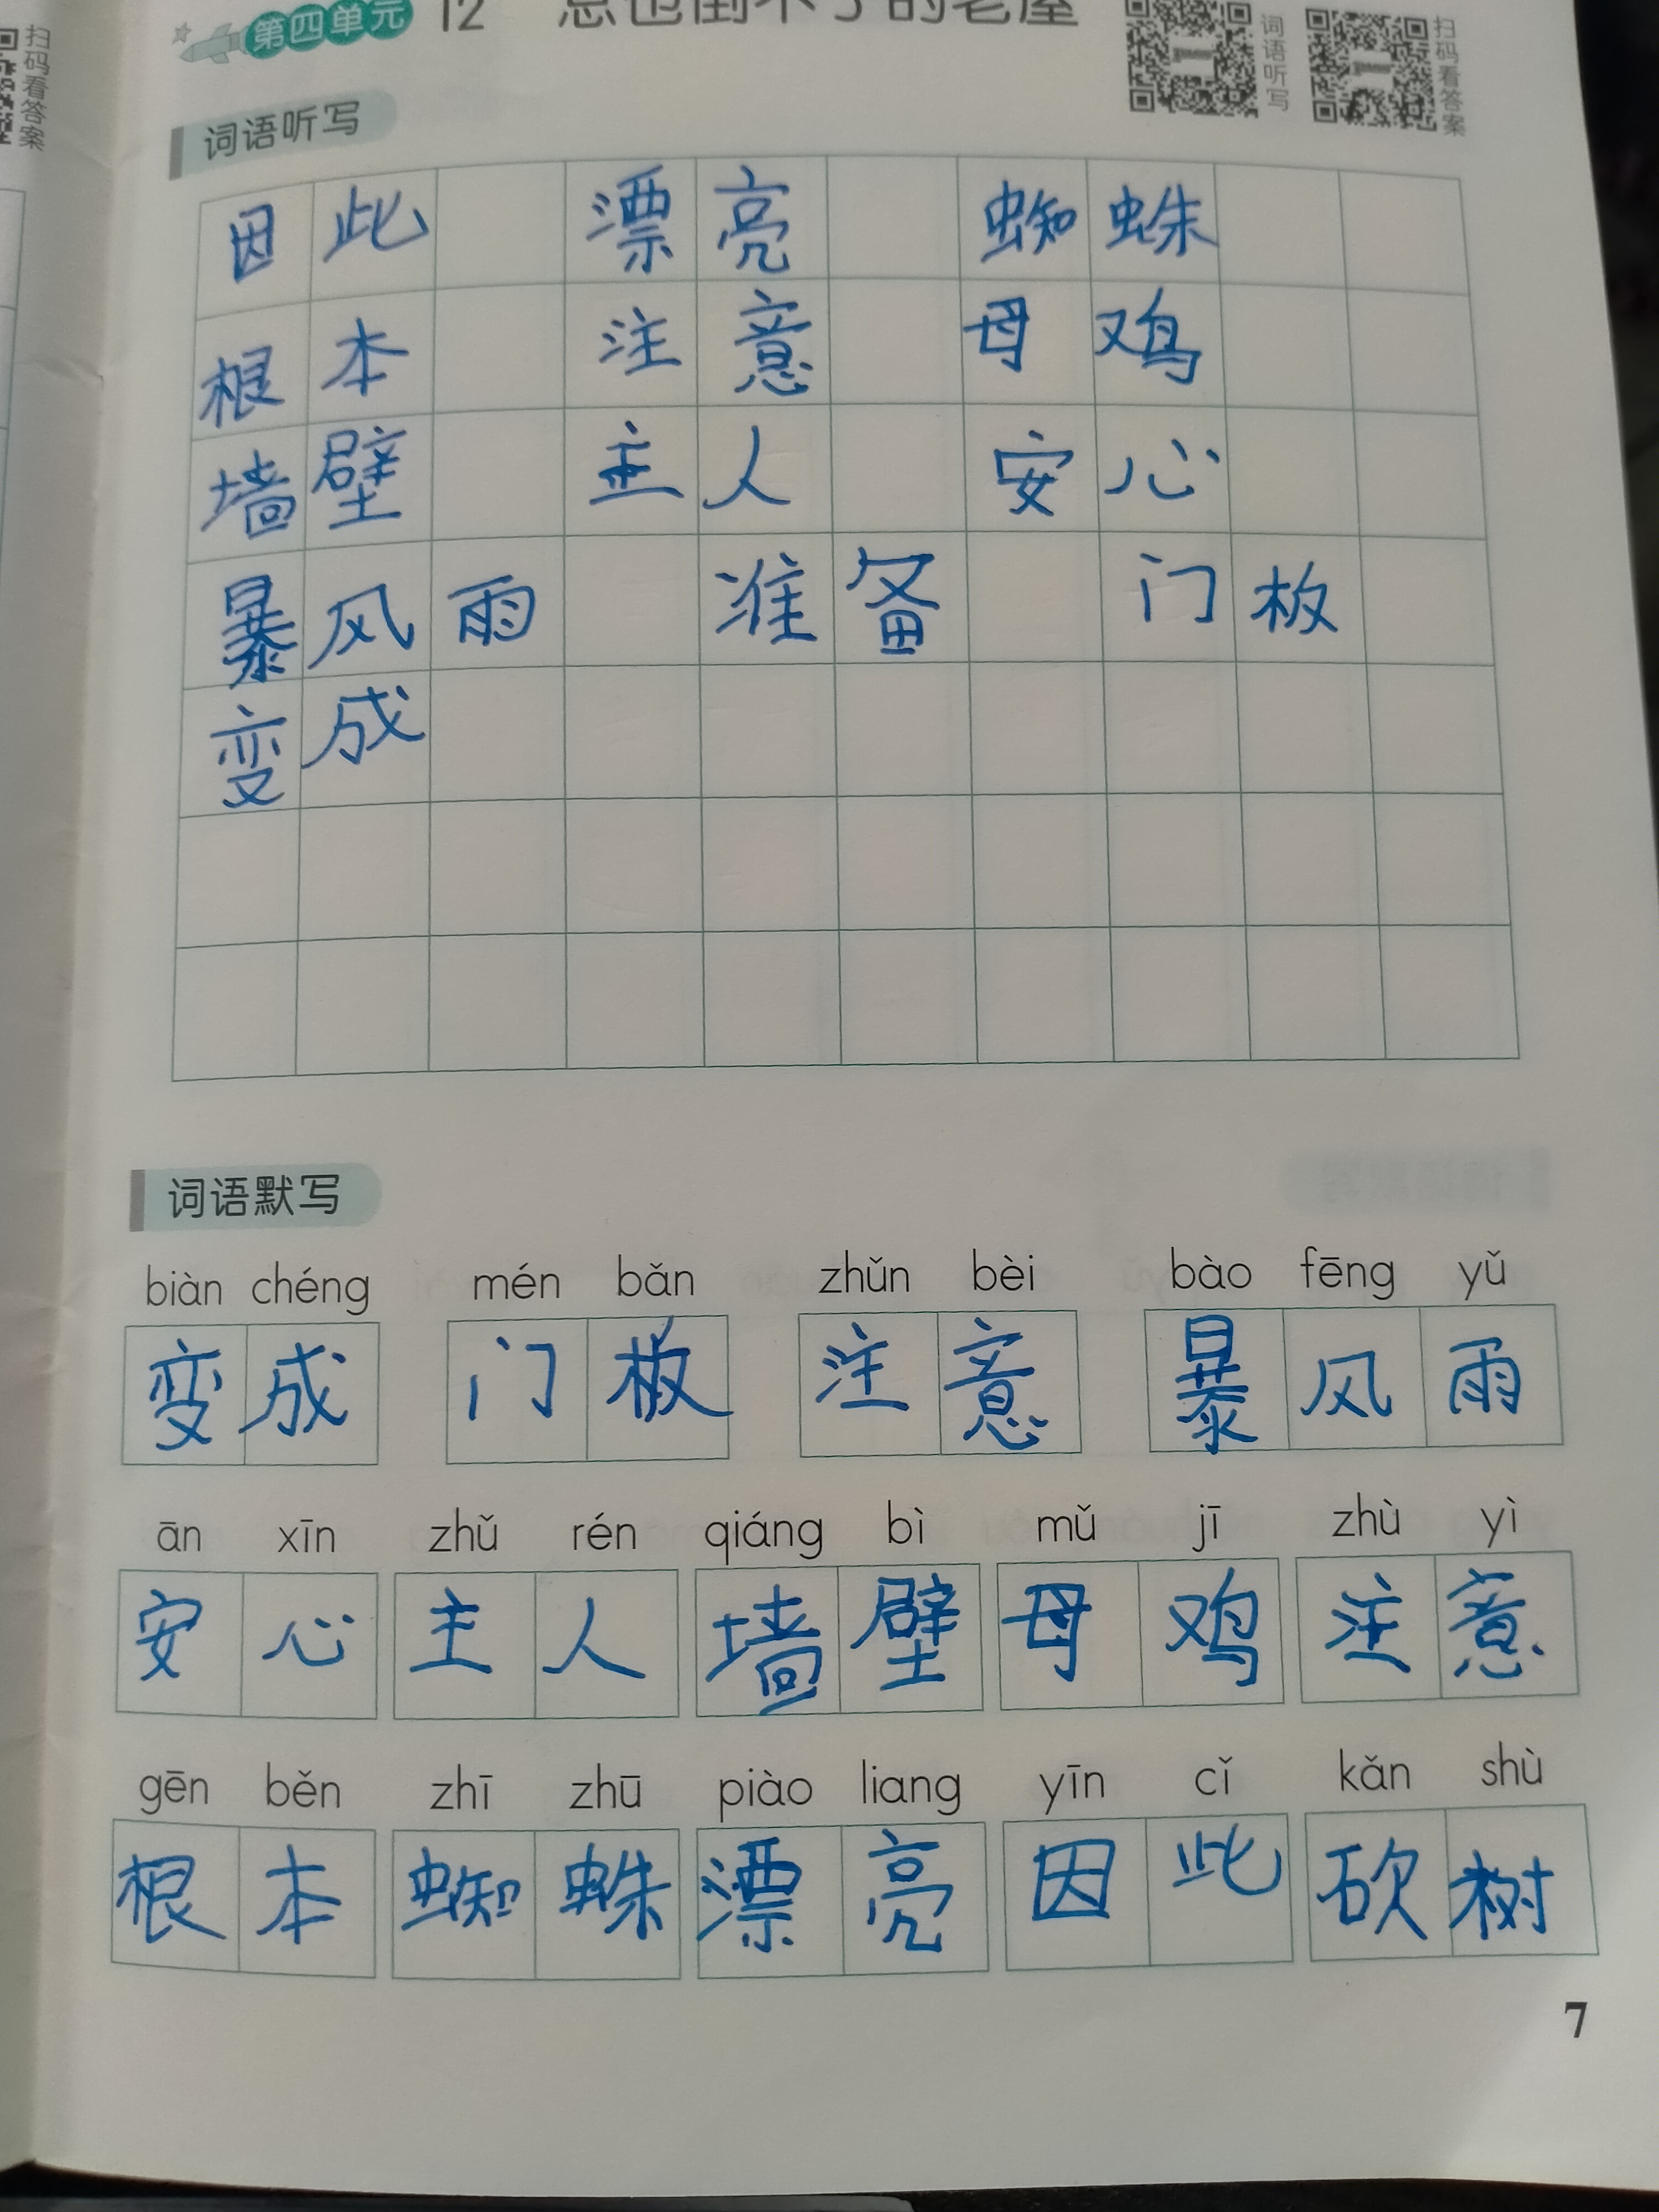 扫码看答案
第四单元 12 总也倒不了的老屋
词语听写
扫码看答案
词语听写
因此 漂亮 蜘蛛
根本 注意 母鸡
墙壁 主人 安心
暴风雨 准备 门板
变成
词语默写
biàn chéng mén bǎn zhǔn bèi bào fēng yǔ
变成 门板 注意 暴风雨
ān xīn zhǔ rén qiáng bì mǔ jī zhù yì
安心 主人 墙壁 母鸡 注意
gēn běn zhī zhū piào liang yīn cǐ kǎn shù
根本 蜘蛛 漂亮 因此 砍树
7